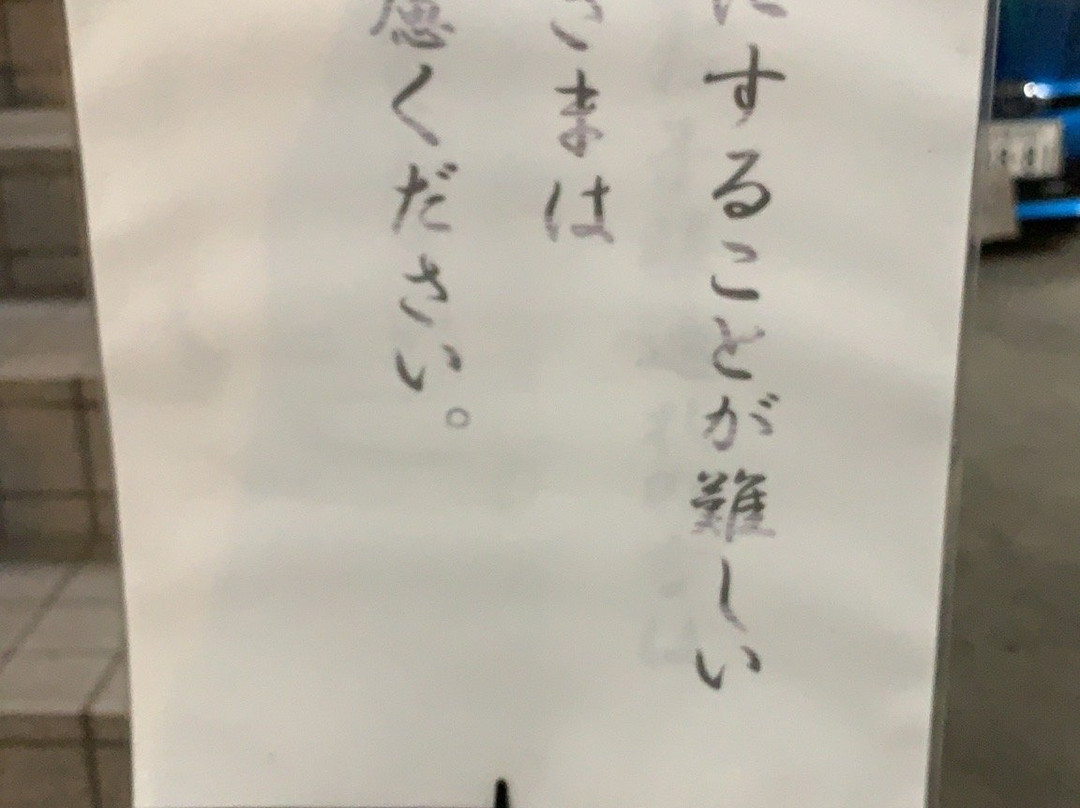 にすることが難しい
さまは
慮ください。